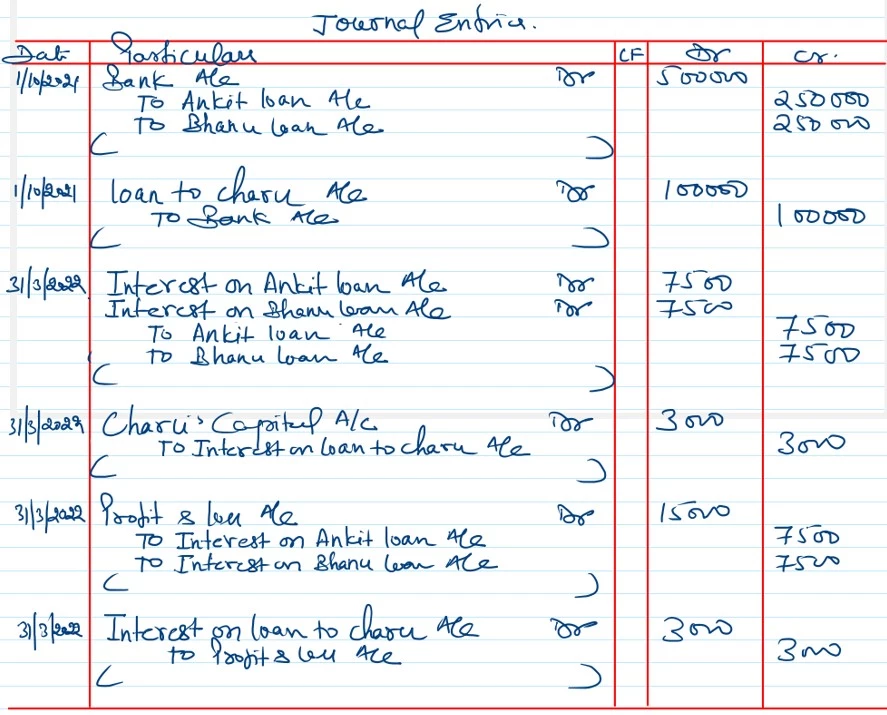 Journal Entries.
Date Particulars CF Dr Cr.
1/10/2021 Bank A/c Dr 500000
To Ankit loan A/c 250000
To Bhanu loan A/c 250000
( )
1/10/2021 loan to charu A/c Dr 100000
To Bank A/c 100000
( )
31/3/2022 Interest on Ankit loan A/c Dr 7500
Interest on Bhanu loan A/c Dr 7500
To Ankit loan A/c 7500
To Bhanu loan A/c 7500
( )
31/3/2022 Charu's Capital A/c Dr 3000
To Interest on loan to charu A/c 3000
( )
31/3/2022 Profit & loss A/c Dr 15000
To Interest on Ankit loan A/c 7500
To Interest on Bhanu loan A/c 7500
( )
31/3/2022 Interest on loan to charu A/c Dr 3000
to Profit & loss A/c 3000
( )